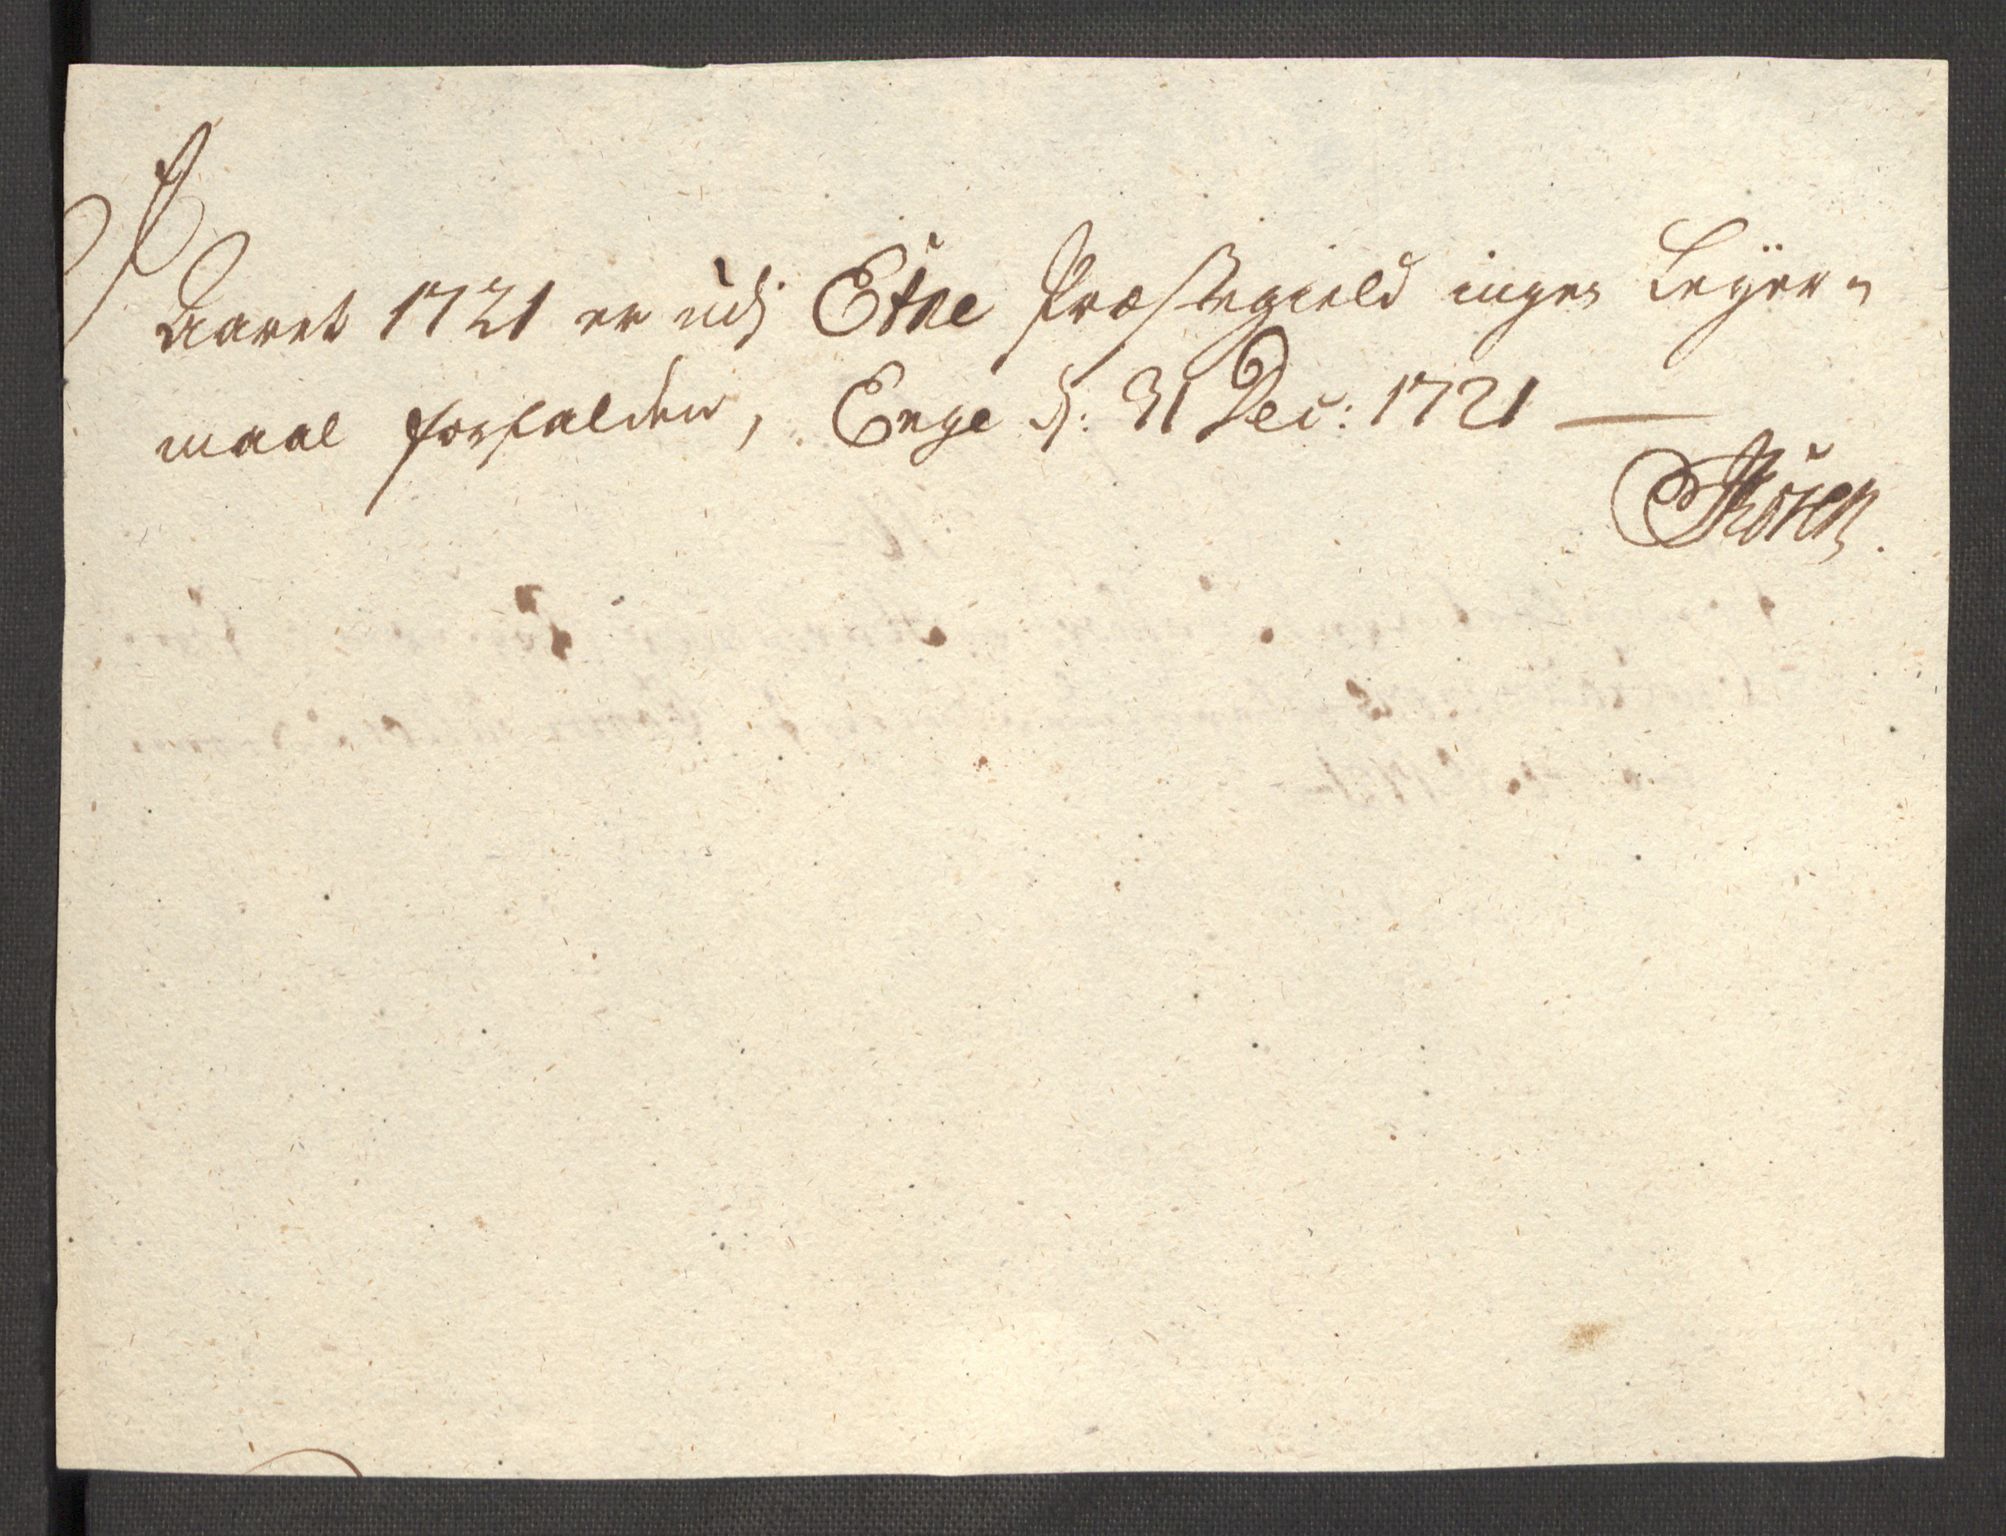 Aaret 1721 er udj Etne Præstegield ingen Leÿer-
maal forfalden, Enge d: 31 Dec: 1721